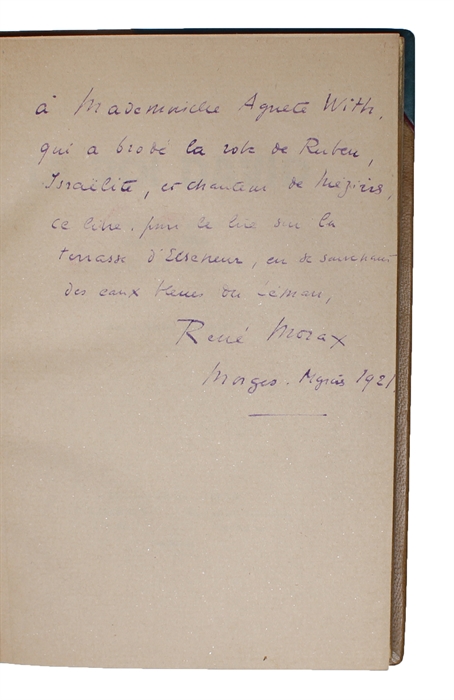 à Mademoiselle Agnete With,
qui a brodé la robe de Ruben,
Israëlite, et chanteur de Mézières,
ce livre, pour le lire sur la
terrasse d'Elseneur, en se souvenant
des eaux bleues du Léman,
René Morax
Morges. 1921